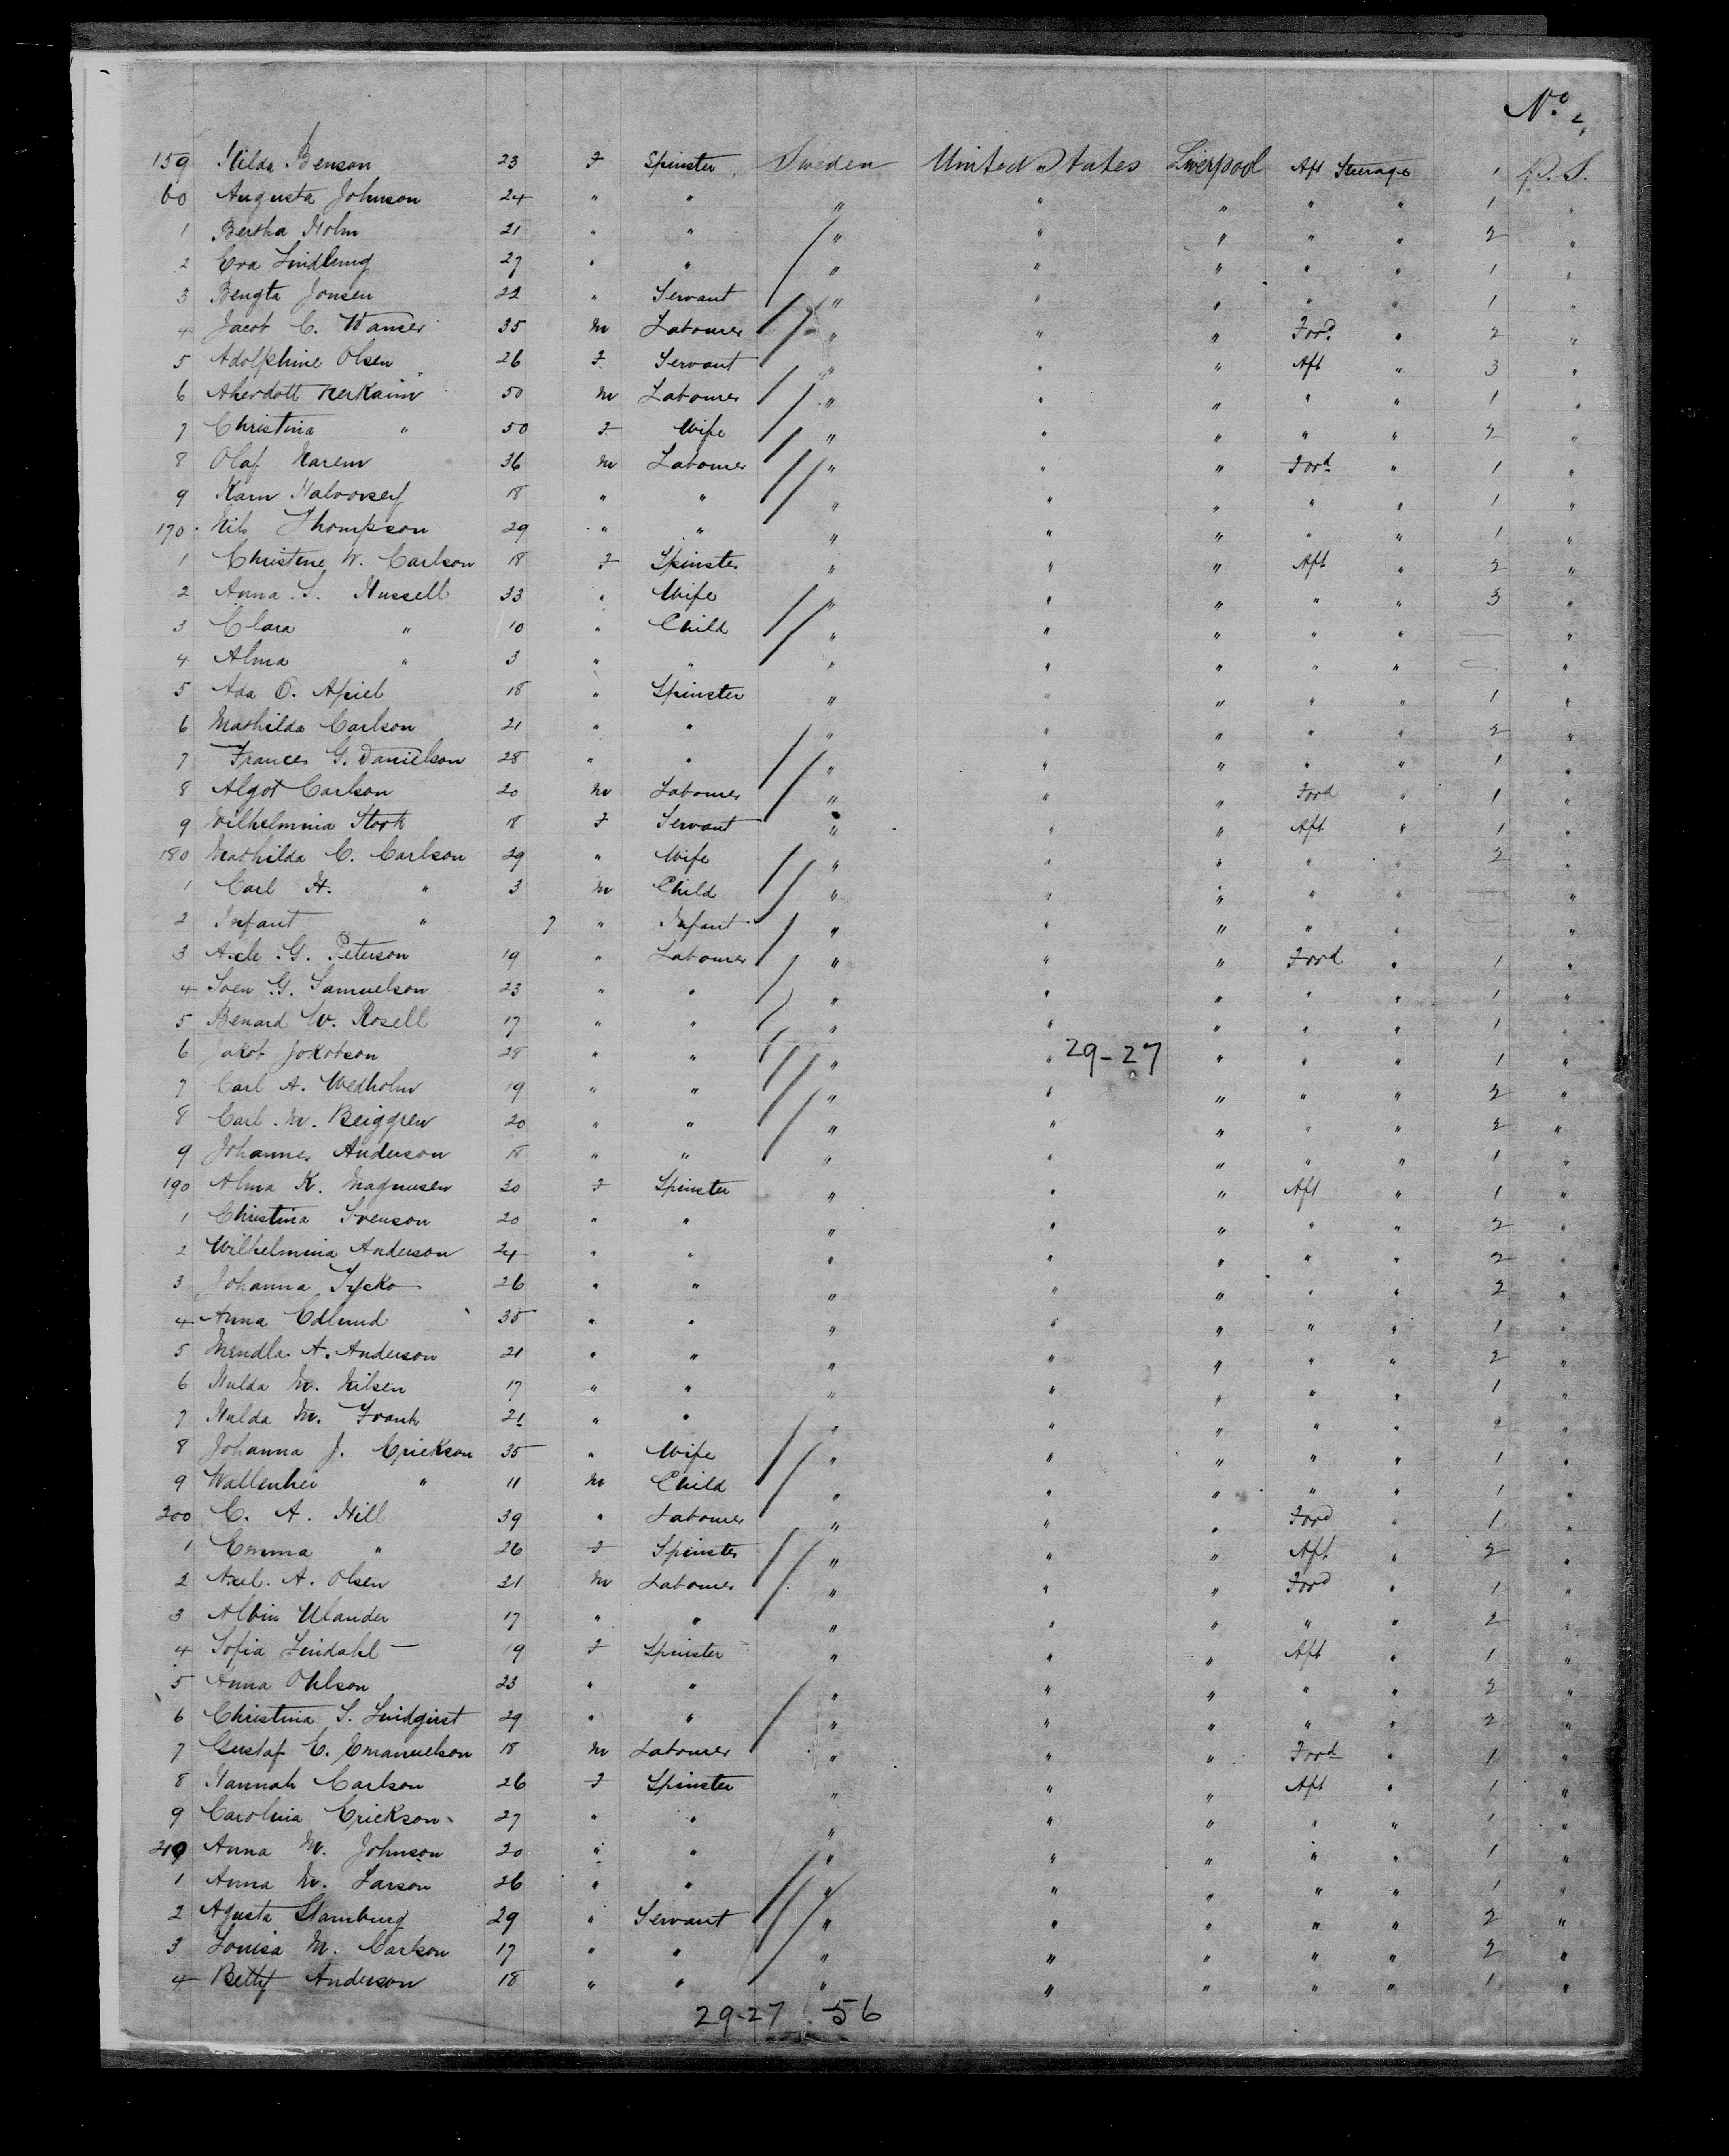 No. 4
159 Hilda Benson 23 F Spinster Sweden United States Liverpool Aft Steerage 1 P.S.
60 Augusta Johnson 24 " " " " " " " 1 "
1 Bertha Holm 21 " " " " " " " 2 "
2 Eva Lindberg 27 " " " " " " " 1 "
3 Bengta Jonsen 22 " Servant " " " " " 1 "
4 Jacob C. 35 M Labourer " " " Ford " 2 "
5 Adolphine Olsen 26 F Servant " " " Aft " 3 "
6 50 M Labourer " " " " " 1 "
7 Christina " 50 F Wife " " " " " 2 "
8 Olaf Narem 36 M Labourer " " " Ford " 1 "
9 Karn Halvorsen 18 " " " " " " " 1 "
170 Nils Thompson 29 " " " " " " " 1 "
1 Christine W. Carlson 18 F Spinster " " " Aft " 2 "
2 Anna S. Hussell 33 " Wife " " " " " 3 "
3 Clara " 10 " Child " " " " " — "
4 Alma " 3 " " " " " " " — "
5 Ada O. Apiel 18 " Spinster " " " " " 1 "
6 Mathilda Carlson 21 " " " " " " " 2 "
7 Frances G. Danielson 28 " " " " " " " 1 "
8 Algot Carlson 20 M Labourer " " " Ford " 1 "
9 Wilhelmina Stork 18 F Servant " " " Aft " 1 "
180 Mathilda C. Carlson 29 " Wife " " " " " 2 "
1 Carl H. " 3 M Child " " " " " — "
2 Infant " 7 " Infant " " " " " "
3 Axle G. Peterson 19 " Labourer " " " Ford " 1 "
4 Sven G. Samuelson 23 " " " " " " " 1 "
5 Benard W. Rosell 17 " " " " " " " 1 "
6 Jakob Jakobson 28 " " " " 29-27 " " " 1 "
7 Carl A. Wedholm 19 " " " " " " " 2 "
8 Carl M. Beiggren 20 " " " " " " " 2 "
9 Johannes Anderson 18 " " " " " " " 1 "
190 Alma K. Magnusen 20 F Spinster " " " Aft " 1 "
1 Christina Svenson 20 " " " " " " " 2 "
2 Wilhelmina Anderson 24 " " " " " " " 2 "
3 Johanna Tycko 26 " " " " " " " 2 "
4 Anna Edlund 35 " " " " " " " 1 "
5 A. Anderson 21 " " " " " " " 2 "
6 Hulda M. Nilsen 17 " " " " " " " 1 "
7 Hulda M. Frank 21 " " " " " " " 2 "
8 Johanna J. Erickson 35 " Wife " " " " " 1 "
9 " 11 M Child " " " " " 1 "
200 C. A. Hill 39 " Labourer " " " Ford " 1 "
1 Emma " 26 F Spinster " " " Aft " 2 "
2 Axel. A. Olsen 21 M Labourer " " " Ford " 1 "
3 Albin Ulander 17 " " " " " " " 2 "
4 Sofia Lindahl 19 F Spinster " " " Aft " 1 "
5 Anna Ohlson 23 " " " " " " " 2 "
6 Christina S. Lindqvist 29 " " " " " " " 2 "
7 Gustaf E. Emanuelson 18 M Labourer " " " Ford " 1 "
8 Hannah Carlson 26 F Spinster " " " Aft " 1 "
9 Carolina Erickson 27 " " " " " " " 1 "
210 Anna M. Johnson 20 " " " " " " " 1 "
1 Anna M. Larson 26 " " " " " " " 1 "
2 Agusta Stamburg 29 " Servant " " " " " 2 "
3 Louisa M. Carlson 17 " " " " " " " 2 "
4 Betty Anderson 18 " " " " " " " 1 "
29-27 56